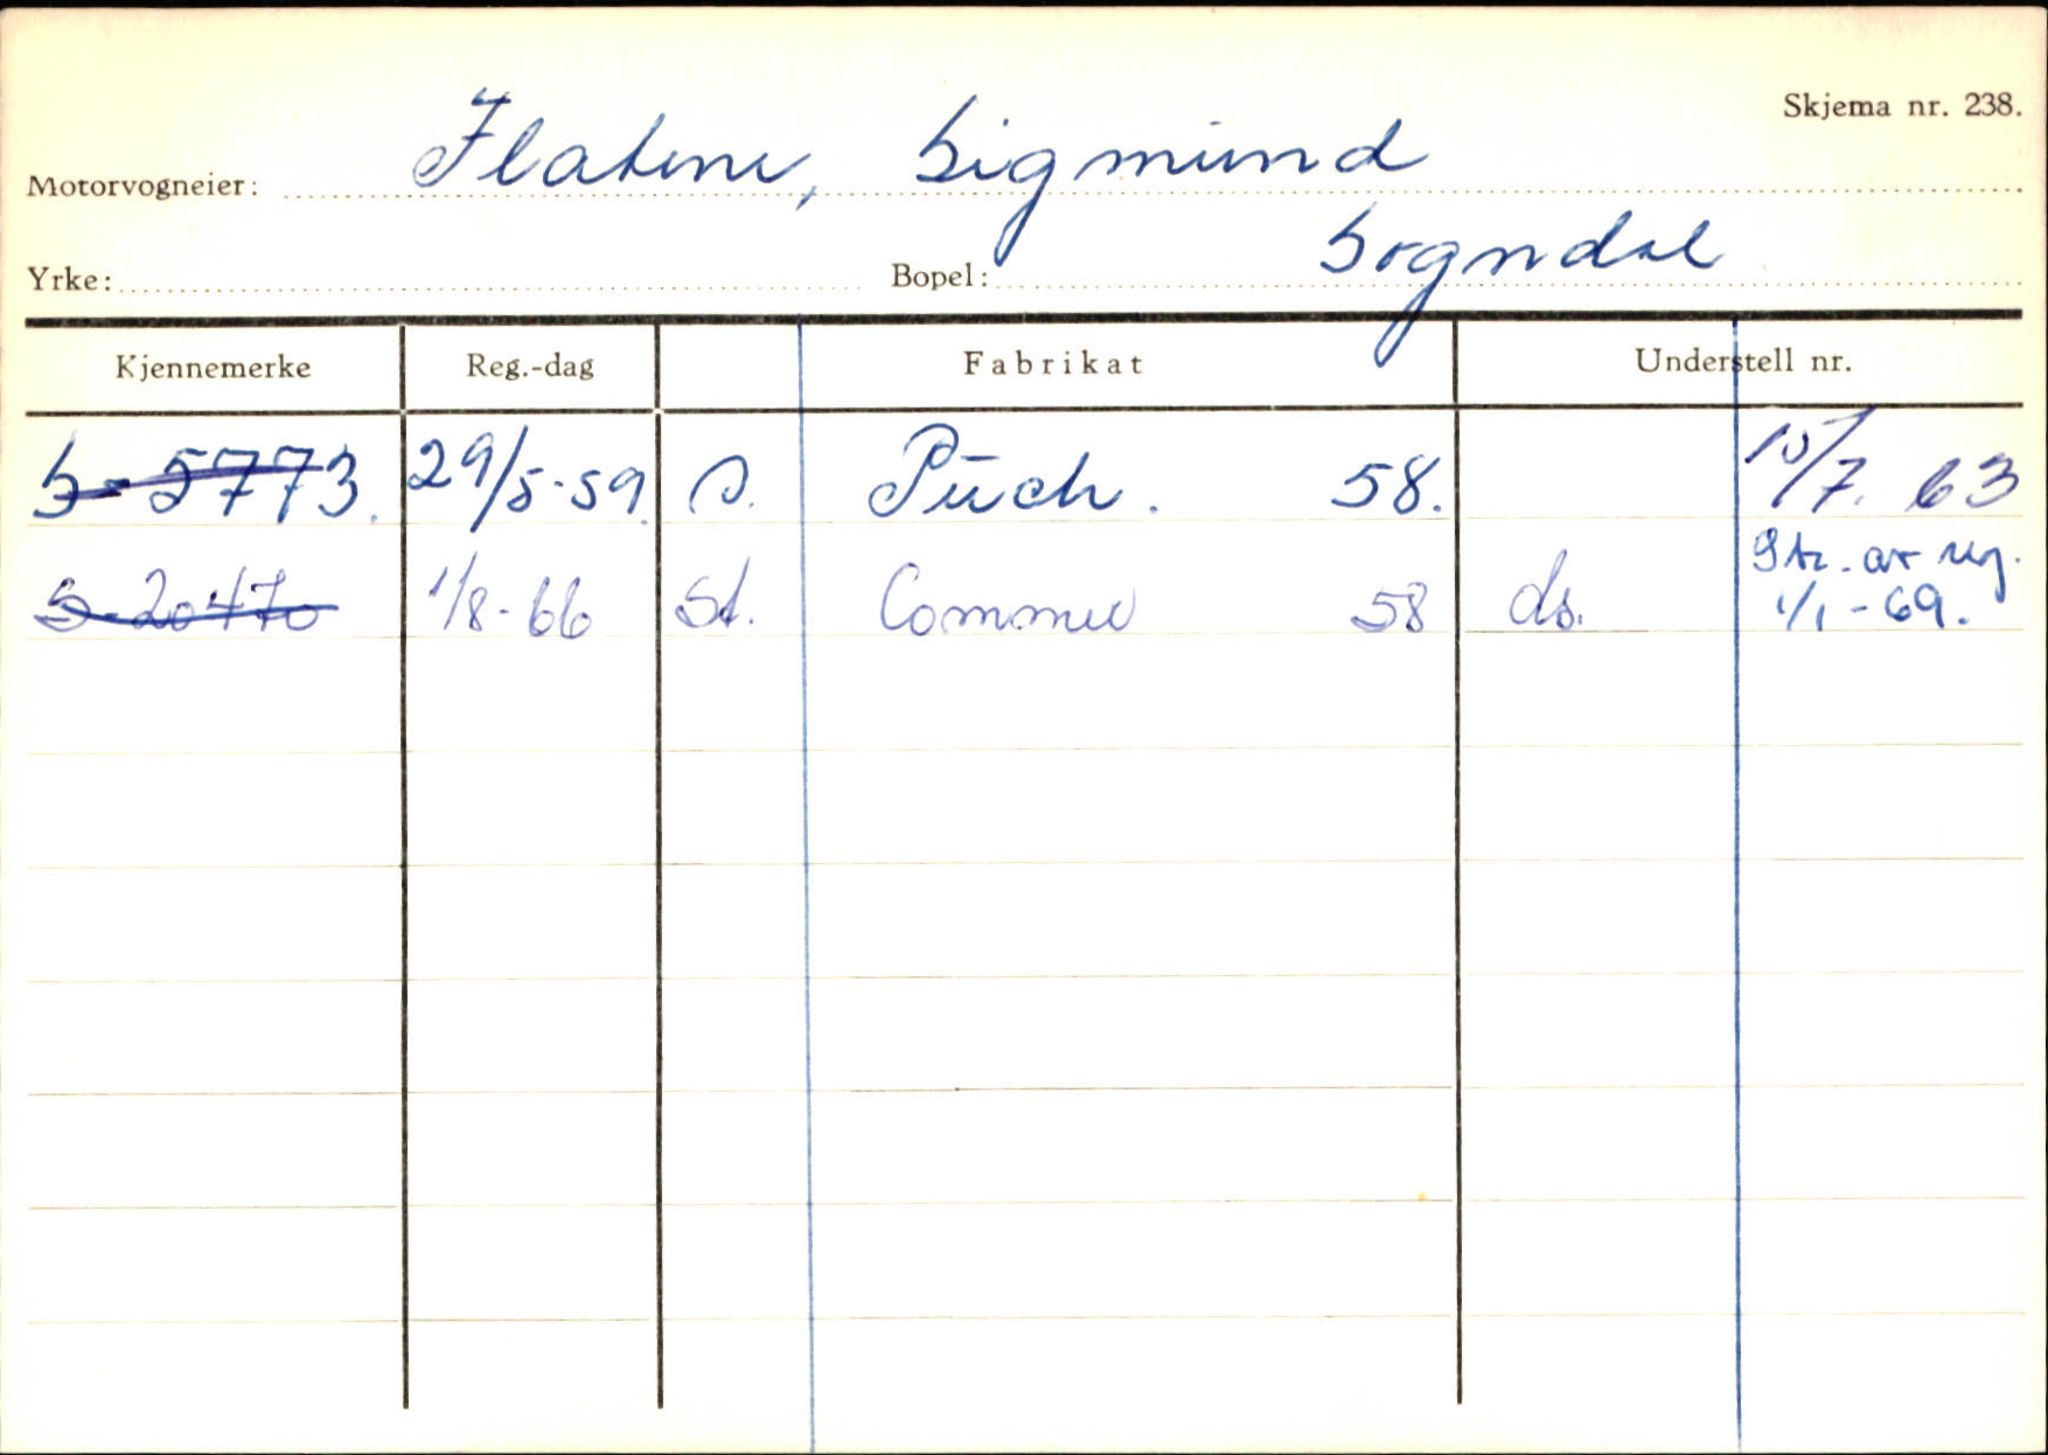 Skjema nr. 238.
Motorvogneier: Flatene, Sigmund
Yrke: Bopel: Sogndal
Kjennemerke Reg.-dag Fabrikat Understell nr.
S-5773. 29/5-59. S. Puch. 58. 15/7. 63
S-20470 1/8-66 St. Commer 58 ds. Str. av reg.
1/1-69.